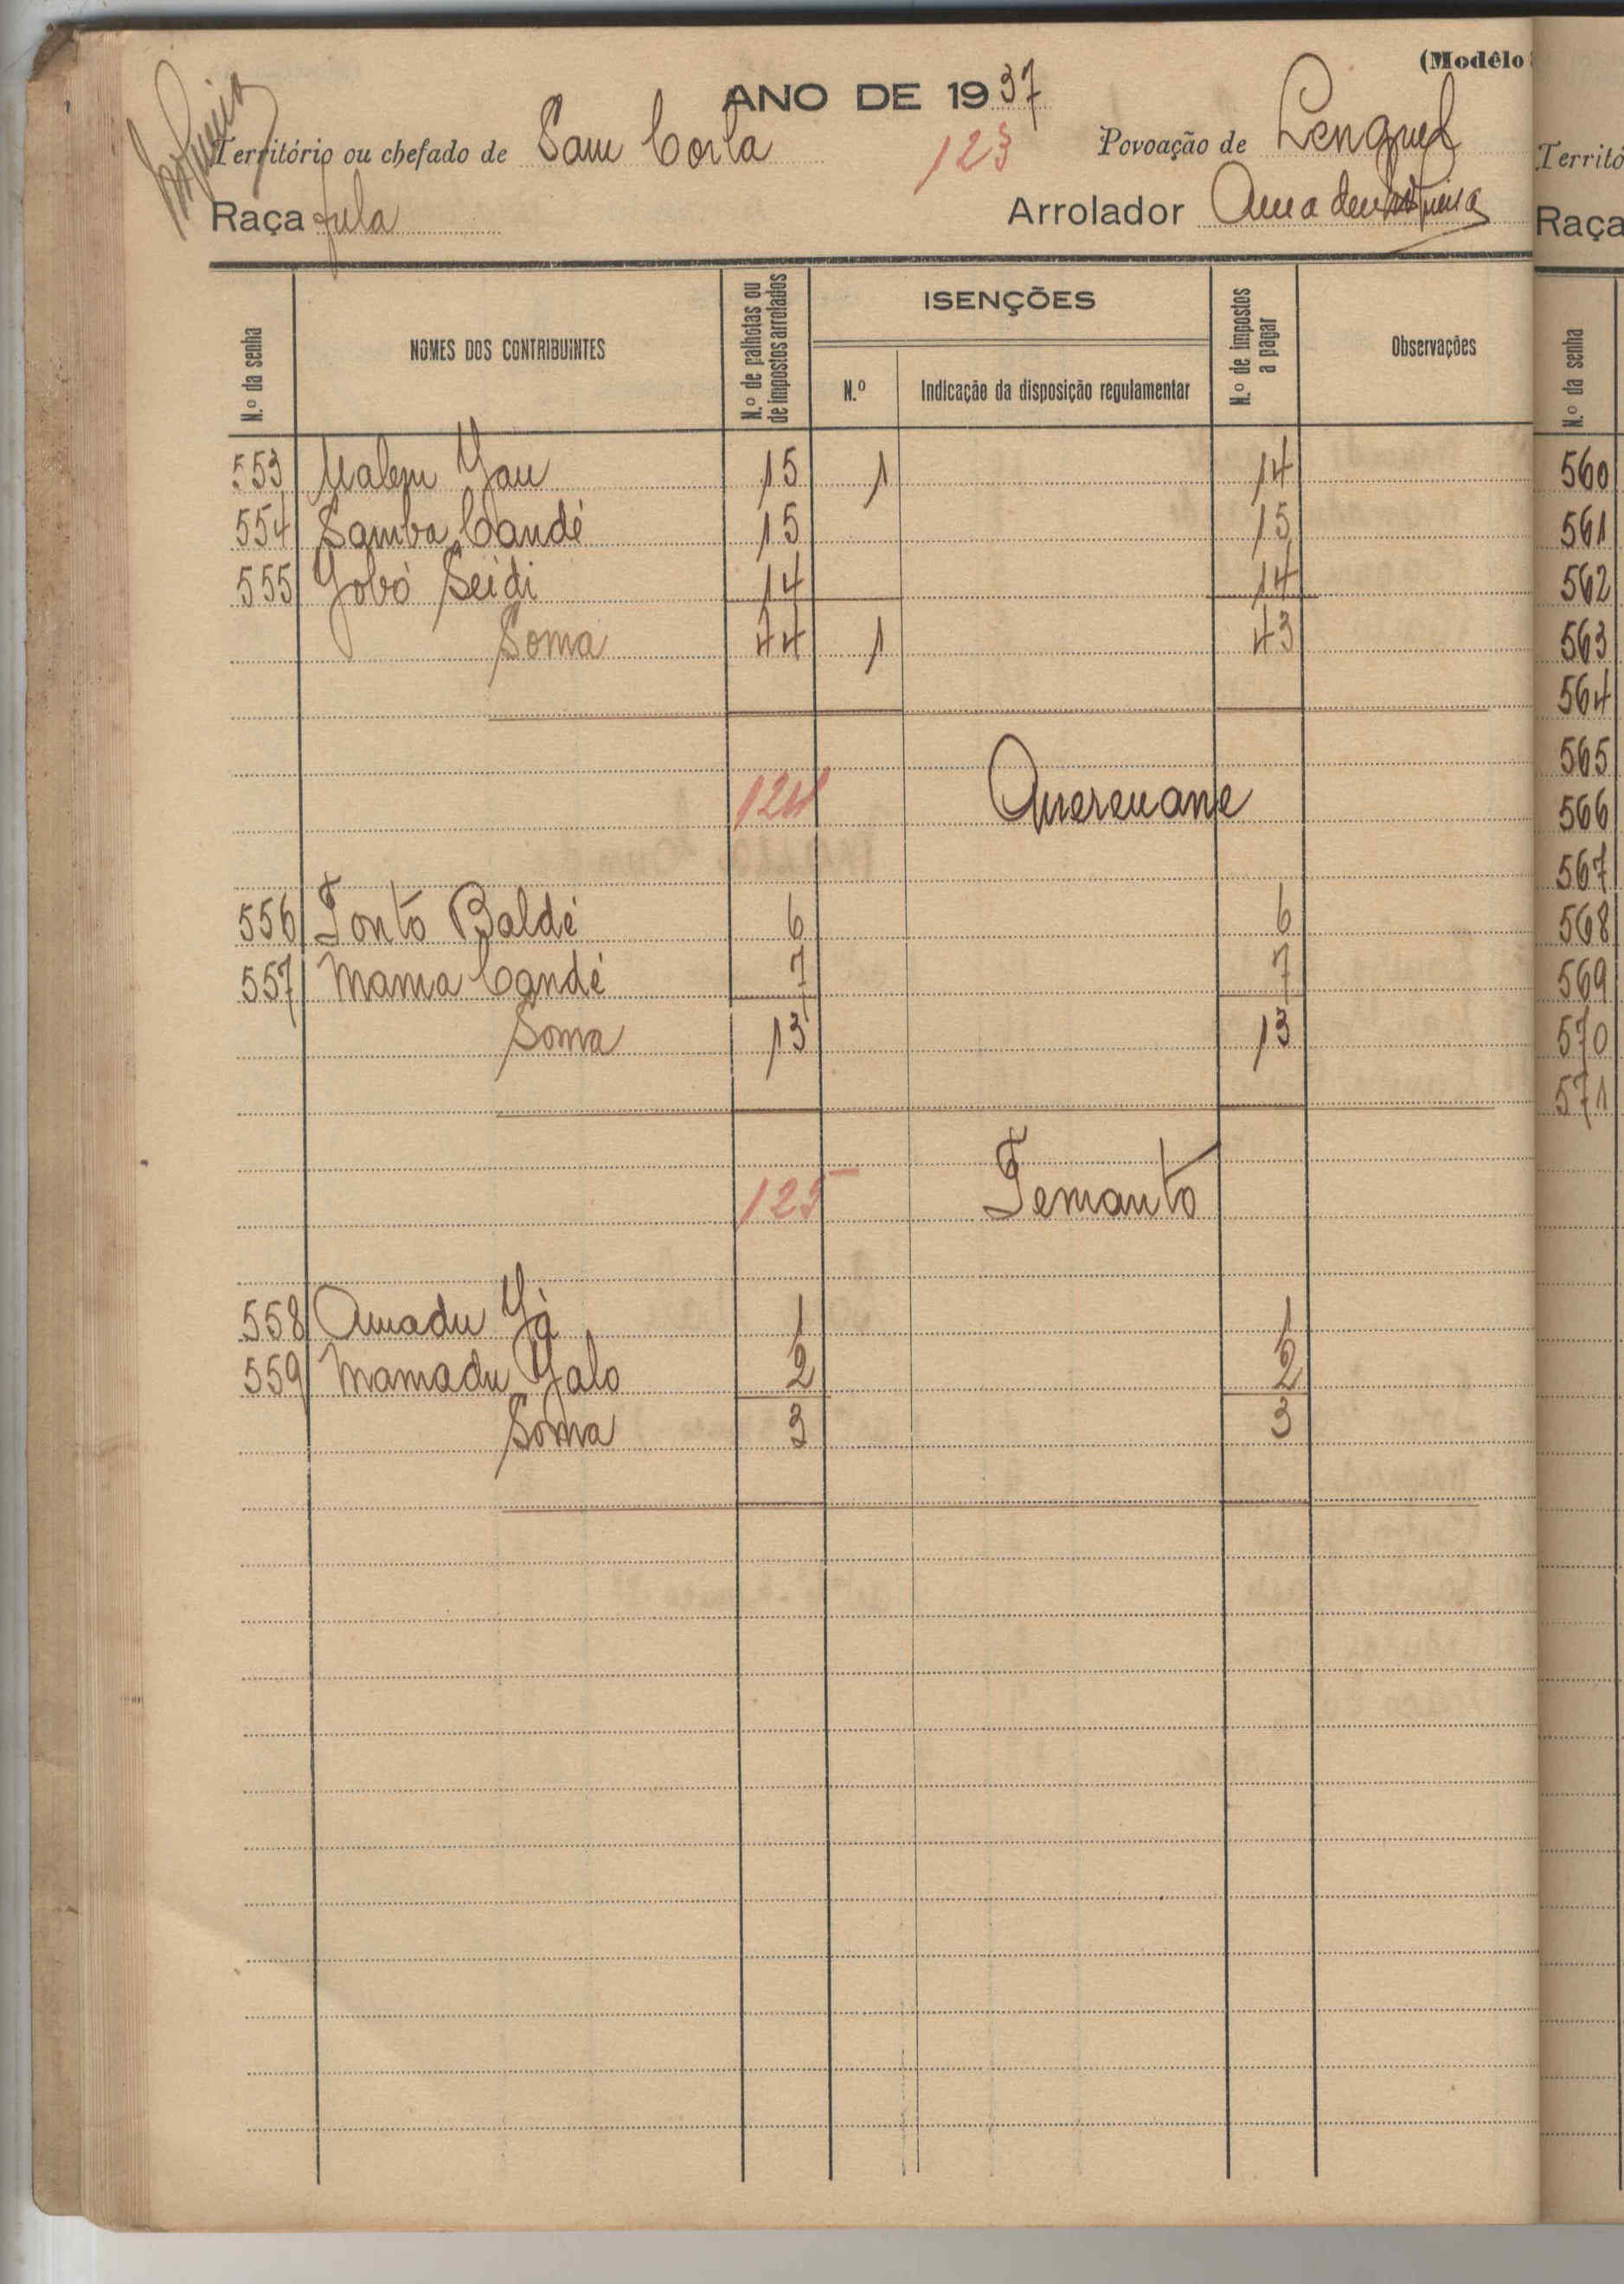 (Modêlo
ANO DE 1937
Território ou chefado de Sam Corla 123 Povoação de Lenguel
Raça fula Arrolador
N.º da senha NOMES DOS CONTRIBUINTES N.º de palhotas ou de impostos arrolados ISENÇÕES N.º Indicação da disposição regulamentar N.º de impostos a pagar Observações
553 Malem Jau 15 1 14
554 Samba Candé 15 15
555 Jobó Seidi 14 14
Soma 44 1 43
124 Querenane
556 Tonto Baldé 6 6
557 Mama Candé 7 7
Soma 13 13
125 Temanto
558 Amadu Já 1 1
559 Mamadu Jalo 2 2
Soma 3 3
Territó
Raça
N.º da senha
560
561
562
563
564
565
566
567
568
569
570
571